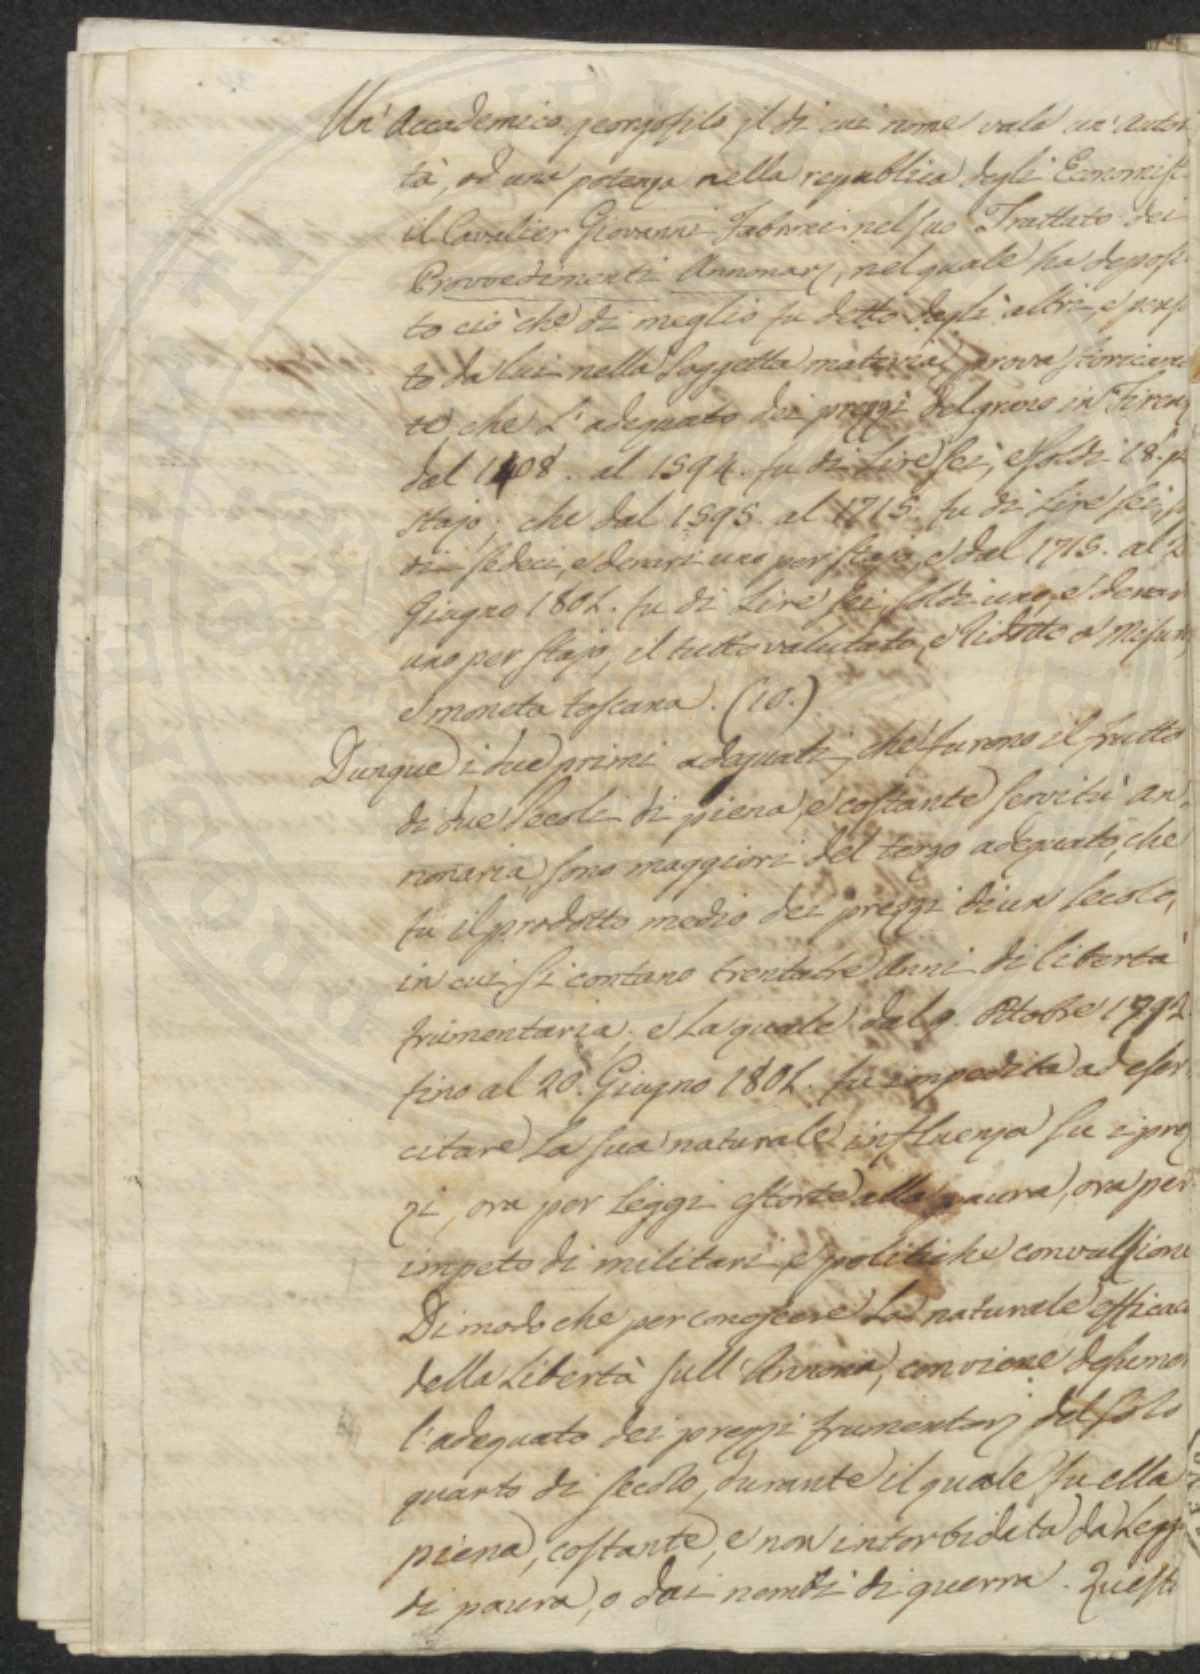 Un' Accademico georgofilo il di cui nome vale un' Autori
tà, ed una potenza nella republica degli Economist
il Cavalier Giovanni Fabroni nel suo Trattato dei
Provvedimenti Annonarj, nel quale ha deposi
to ciò che di meglio fu detto dagli altri e pensa
to da lui nella soggetta materia, prova storicame
te che l'adequato dei prezzi del grano in Firenz
dal 1408. al 1594. fu di Lire sei, e soldi 18. p
stajo; che dal 1595. al 1715. fu di Lire sei, so
di sedeci, e denari uno per stajo, e dal 1715. al 2
Giugno 1801. fu di Lire sei, soldi uno, e denar
uno per stajo, il tutto valutato, e ridotto a misur
e moneta toscana. (10.)
Dunque i due primi adequati, che furono il frutto
di due secoli di piena, e costante servitù an,
nonaria, sono maggiori del terzo adequato, che
fu il prodotto medio dei prezzi di un secolo,
in cui si contano trentatre anni di libertà
frumentaria; e la quale dal 9. Ottobre 1792.
fino al 20. Giugno 1801. fu impedita ad eser
citare la sua naturale influenza su i prez
zi, ora per leggi estorte alla paura, ora per
impeto di militari, e politiche convulsioni
Di modo che per conoscere la naturale efficaci
della Libertà sull' Annona, conviene desumer
l'adequato dei prezzi frumentarj del solo
quarto di secolo, durante il quale fu ella
piena, costante, e non intorbidata da Leggi
di paura, o dai nembi di guerra. Questo